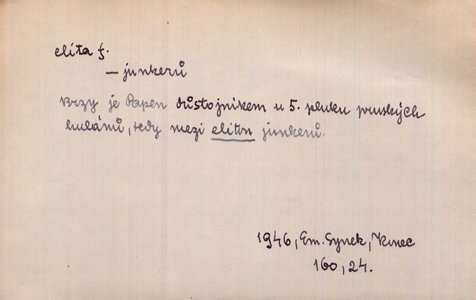 elita f.
— junkerů
Brzy je Papen důstojníkem u 5. pluku pruských
hulánů, tedy mezi elitou junkerů.
1946, Em. Synek, Konec
160, 24.